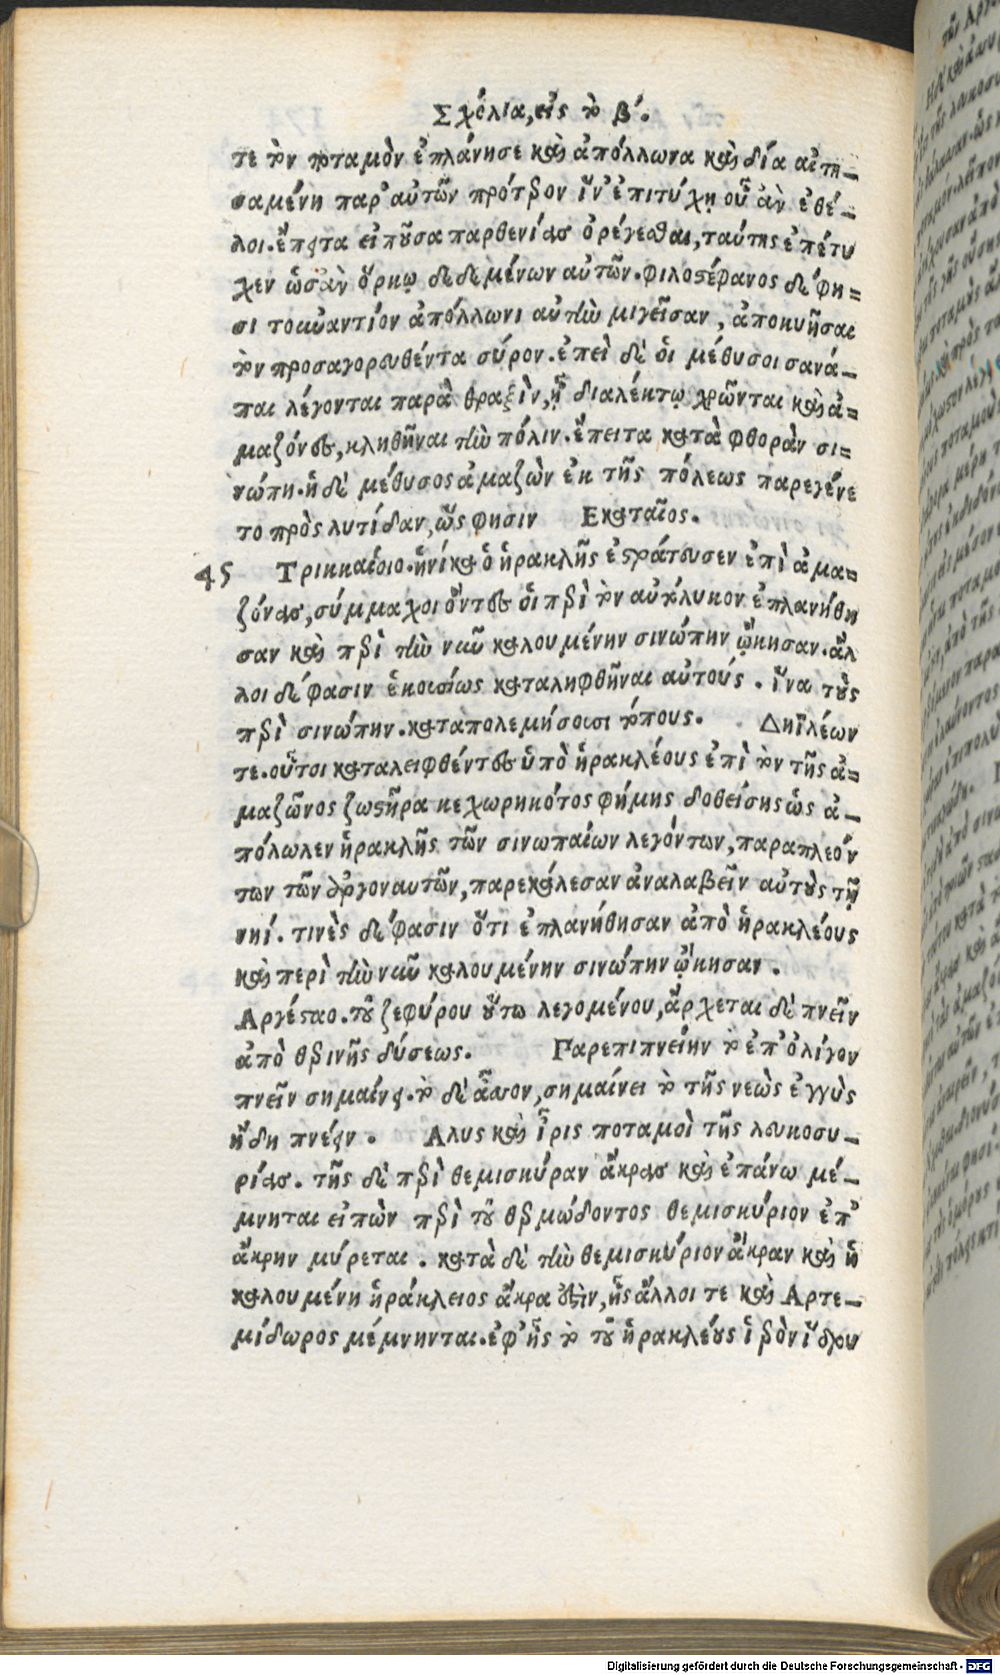 Σχόλια, εἰς τὸ β΄.
τε τὸν ποταμὸν ἐπλάνησε καὶ ἀπόλλωνα καὶ δία αἰτη-
σαμένη παρ' αὐτῶν πρότερον ἵν' ἐπιτύχῃ οὗ ἂν ἐθέ-
λοι. ἔπειτα εἰποῦσα παρθενίας ὀρέγεσθαι, ταύτης ἐπέτυ
χεν ὡσὰν ὅρκῳ δεδεμένων αὐτῶν. φιλοστέφανος δέ φη=
σι τοὐναντίον ἀπόλλωνι αὐτὴν μιγεῖσαν, ἀποκυῆσαι
τὸν προσαγορευθέντα σύρον. ἐπεὶ δὲ ὁι μέθυσοι σανά-
παι λέγονται παρὰ θραξὶν, ᾗ διαλέκτῳ χρῶνται καὶ ἀ=
μαζόνες, κληθῆναι τὴν πόλιν. ἔπειτα κατὰ φθορὰν σι=
νώπη. ἡ δὲ μέθυσος ἀμαζὼν ἐκ τῆς πόλεως παρεγένε
το πρὸς λυτίδαν, ὥς φησιν Εκαταῖος.
45 Τρικκαίοιο. ἡνίκα ὁ ἡρακλῆς ἐστράτευσεν ἐπὶ ἀμα=
ζόνας, σύμμαχοι ὄντες ὁι περὶ τὸν αὐτόλυκον ἐπλανήθη
σαν καὶ περὶ τὴν νῦν καλουμένην σινώπην ᾤκησαν. ἄλ
λοι δέ φασιν ἑκουσίως καταληφθῆναι αὐτούς. ἵνα τοὺς
περὶ σινώπην. καταπολεμήσουσι τόπους. Δηϊλέων
τε. οὗτοι καταλειφθέντες ὑπὸ ἡρακλέους ἐπὶ τὸν τῆς ἀ=
μαζῶνος ζωστῆρα κεχωρηκότος φήμης δοθείσης ὡς ἀ-
πόλωλεν ἡρακλῆς τῶν σινωπαίων λεγόντων, παραπλεόν
των τῶν ἀργοναυτῶν, παρεκάλεσαν ἀναλαβεῖν αὐτοὺς τῇ
νηί. τινὲς δέ φασιν ὅτι ἐπλανήθησαν ἀπὸ ἡρακλέους
καὶ περὶ τὴν νῦν καλουμένην σινώπην ᾤκησαν.
Αργέσταο. τοῦ ζεφύρου οὕτω λεγομένου, ἄρχεται δὲ πνεῖν
ἀπὸ θερινῆς δύσεως. Γαρεπιπνείην τὸ ἐπ' ὀλίγον
πνεῖν σημαίνει. τὸ δὲ ἆσσον, σημαίνει τὸ τῆς νεὼς ἐγγὺς
ἤδη πνέειν. Αλυς καὶ ἶρις ποταμοὶ τῆς λευκοσυ-
ρίας. τῆς δὲ περὶ θεμισκύραν ἄκρας καὶ ἐπάνω μέ-
μνηται εἰπὼν περὶ τοῦ θερμώδοντος θεμισκύριον ἐπ'
ἄκρην μύρεται. κατὰ δὲ τὴν θεμισκύριον ἄκραν καὶ ἡ
καλουμένη ἡράκλειος ἄκρα ἐστὶν, ἧς ἄλλοι τε καὶ Αρτε-
μίδωρος μέμνηνται. ἐφ' ἧς τὸ τοῦ ἡρακλέους ἱερὸν ἵδρυ